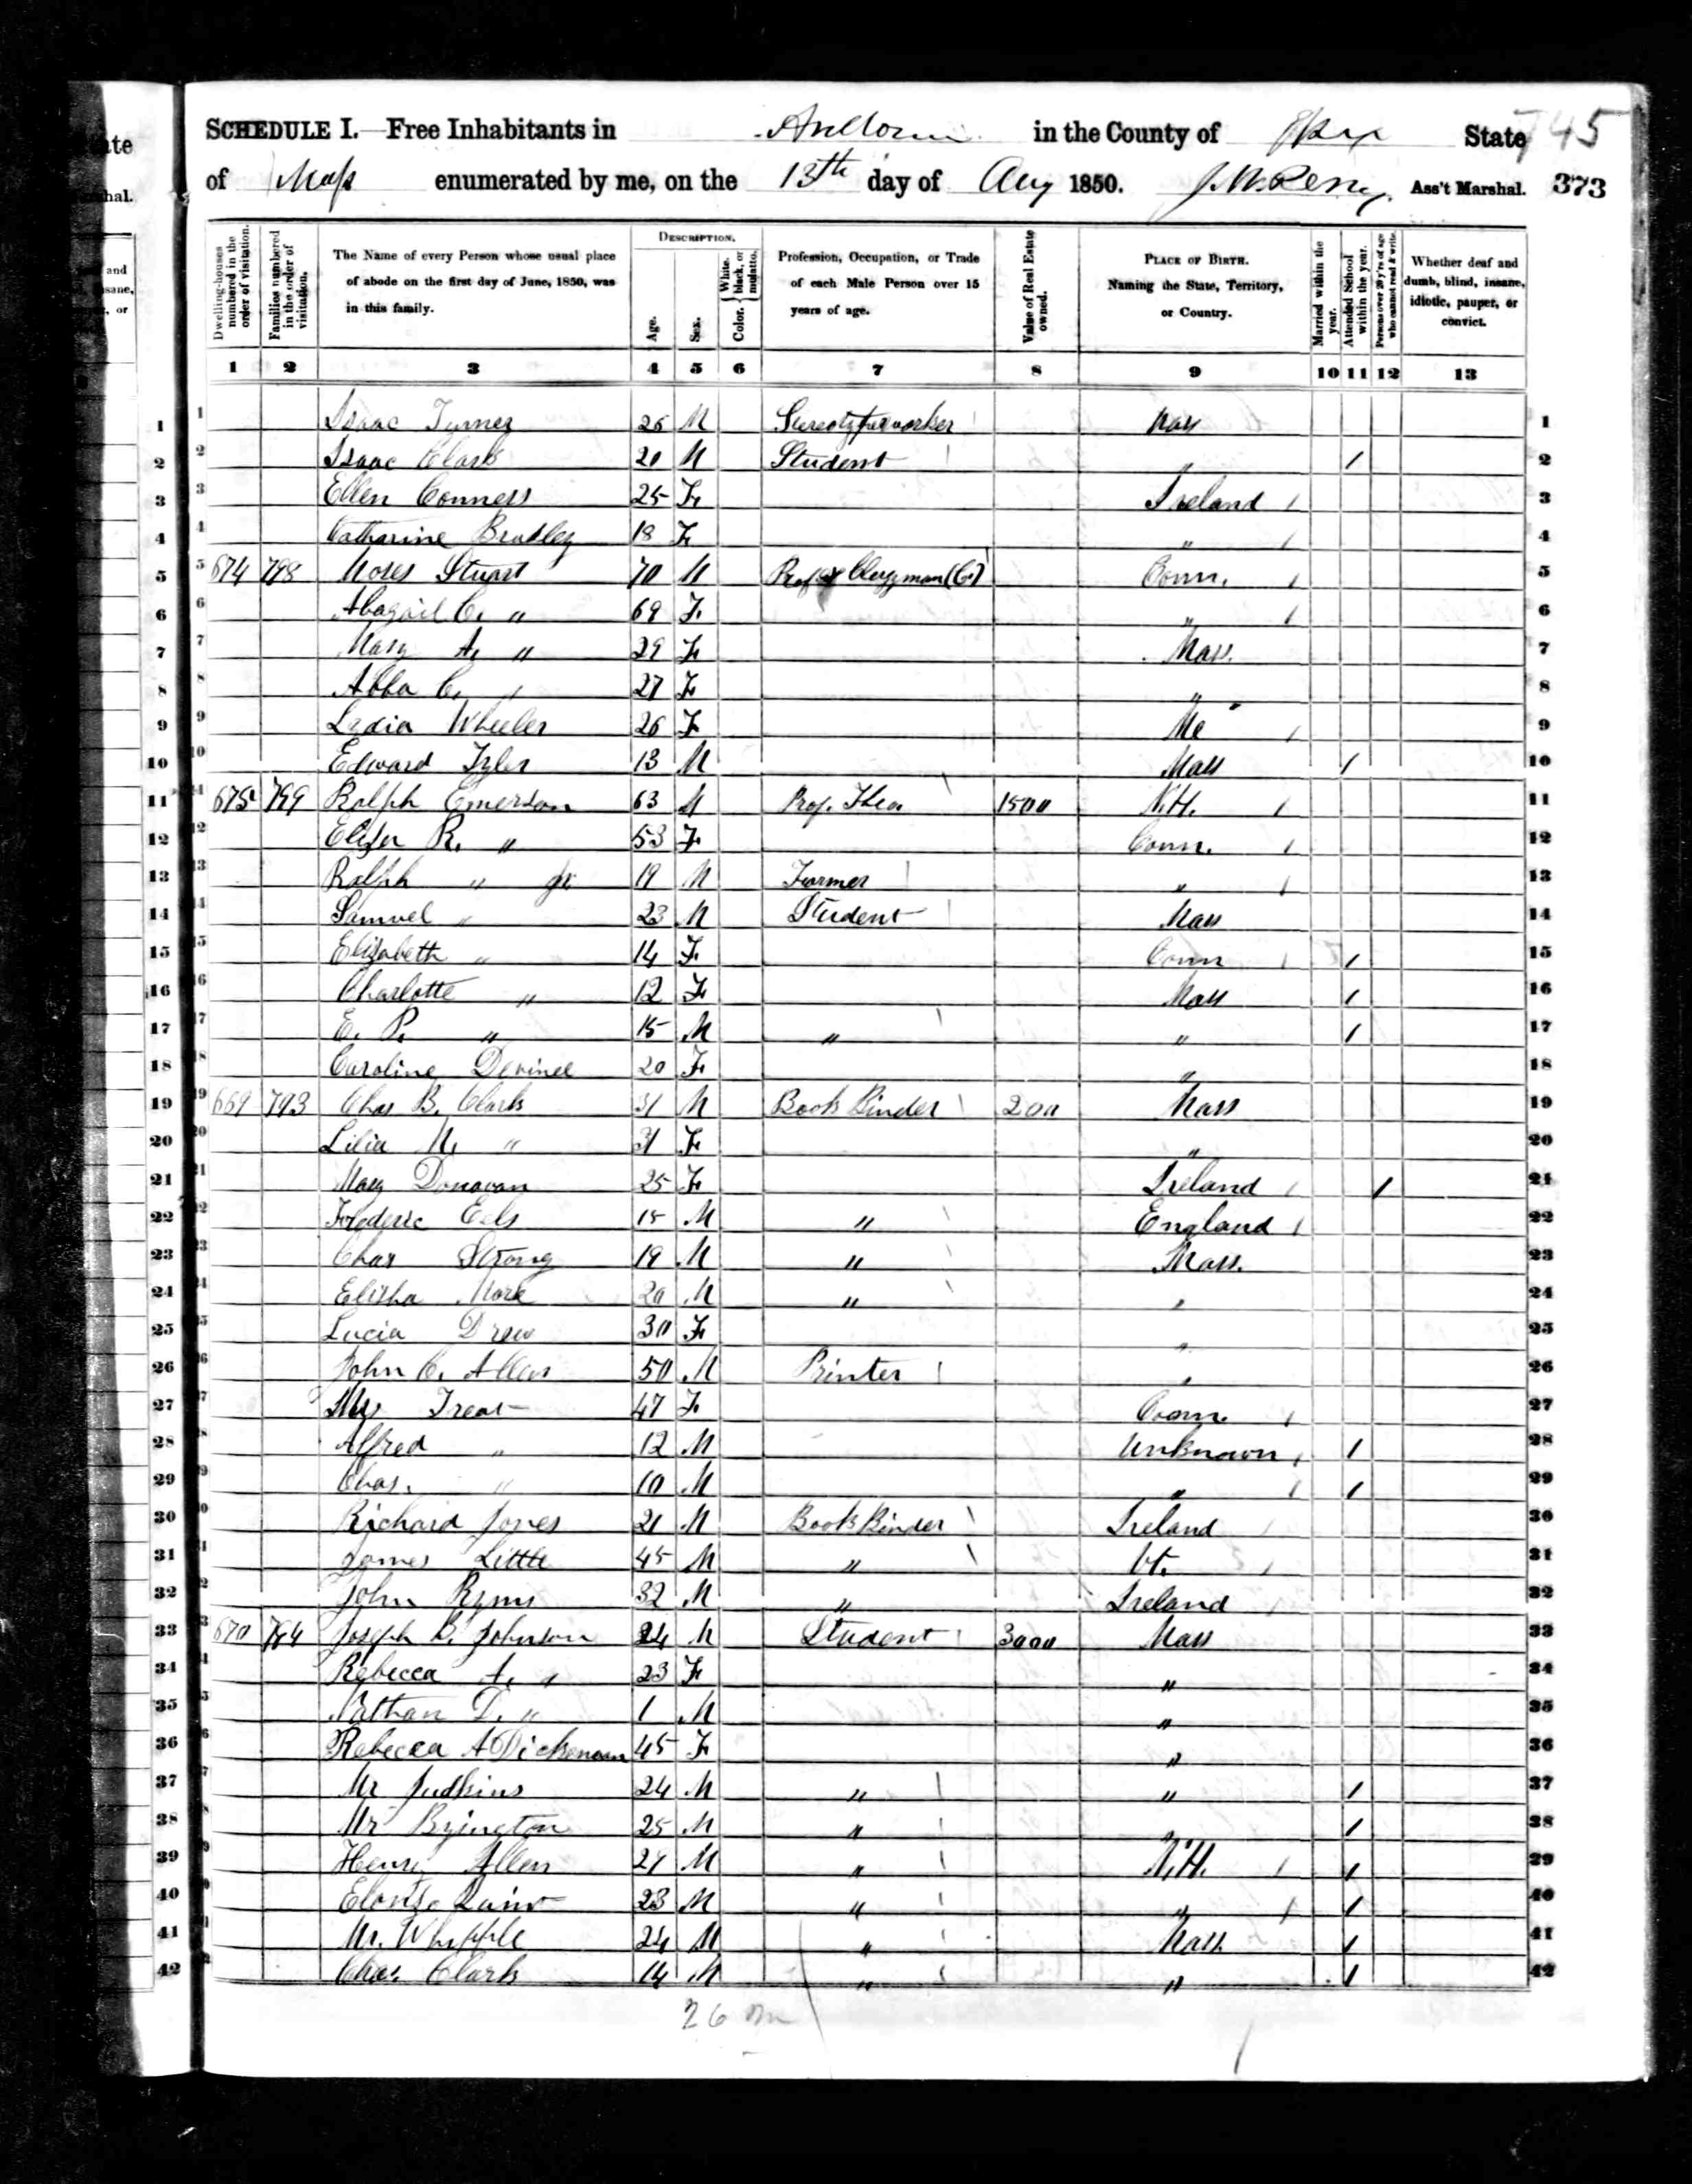 ate
745
SCHEDULE I.—Free Inhabitants in Andover in the County of Essex State
rshal.
of Mass enumerated by me, on the 13th day of Aug 1850. Ass't Marshal. 373
Dwelling-houses numbered in the order of visitation.
Families numbered in the order of visitation.
The Name of every Person whose usual place of abode on the first day of June, 1850, was in this family.
DESCRIPTION.
Age.
Sex.
Color. { White, black, or mulatto.
Profession, Occupation, or Trade of each Male Person over 15 years of age.
Value of Real Estate owned.
PLACE OF BIRTH. Naming the State, Territory, or Country.
Married within the year.
Attended School within the year.
Persons over 20 y'rs of age who cannot read & write.
Whether deaf and dumb, blind, insane, idiotic, pauper, or convict.
1 2 3 4 5 6 7 8 9 10 11 12 13
1 Isaac Turner 26 M Mass 1
2 Isaac Clark 20 M Student " / 2
3 Ellen Conners 25 F Ireland 3
4 Catharine Bradley 18 F " 4
5 674 798 Moses Stuart 70 M Clergyman (C) Conn. 5
6 Abagail C. " 69 F. " 6
7 Mary A. " 29 F Mass. 7
8 Abba C. " 27 F " 8
9 Lydia Wheeler 26 F Me 9
10 Edward Tyler 13 M Mass / 10
11 675 799 Ralph Emerson 63 M Prof. Theo 1500 N.H. 11
12 Eliza R. " 53 F Conn. 12
13 Ralph " Jr 19 M Farmer " 13
14 Samuel " 23 M Student Mass 14
15 Elizabeth " 14 F. Conn / 15
16 Charlotte " 12 F Mass / 16
17 E. P. " 15 M " " / 17
18 Caroline 20 F " 18
19 669 793 Chas B. Clark 31 M Book Binder 200 Mass 19
20 Lilia M. " 31 F " 20
21 Mary Donavan 25 F Ireland / 21
22 Frederic Eels 15 M " England 22
23 Chas Strong 19 M " Mass. 23
24 Elisha 20 M " " 24
25 Lucia Drew 30 F " 25
26 John C. Allen 50 M Printer " 26
27 Mrs Treat 47 F Conn. 27
28 Alfred " 12 M Unknown / 28
29 Chas. " 10 M " / 29
30 Richard Jones 21 M Book Binder Ireland 30
31 James Little 45 M " Vt. 31
32 John 32 M " Ireland 32
33 670 794 Joseph B. Johnson 24 M Student 3000 Mass 33
34 Rebecca A. " 23 F " 34
35 Nathan D. " 1 M " 35
36 Rebecca A Dickenson 45 F " 36
37 Mr Judkins 24 M " " / 37
38 Mr Byington 25 M " " / 38
39 Henry Allen 27 M " N.H. / 39
40 23 M " " / 40
41 Mr. Whipple 24 M " Mass. / 41
42 Chas. Clark 14 M " " / 42
26 m